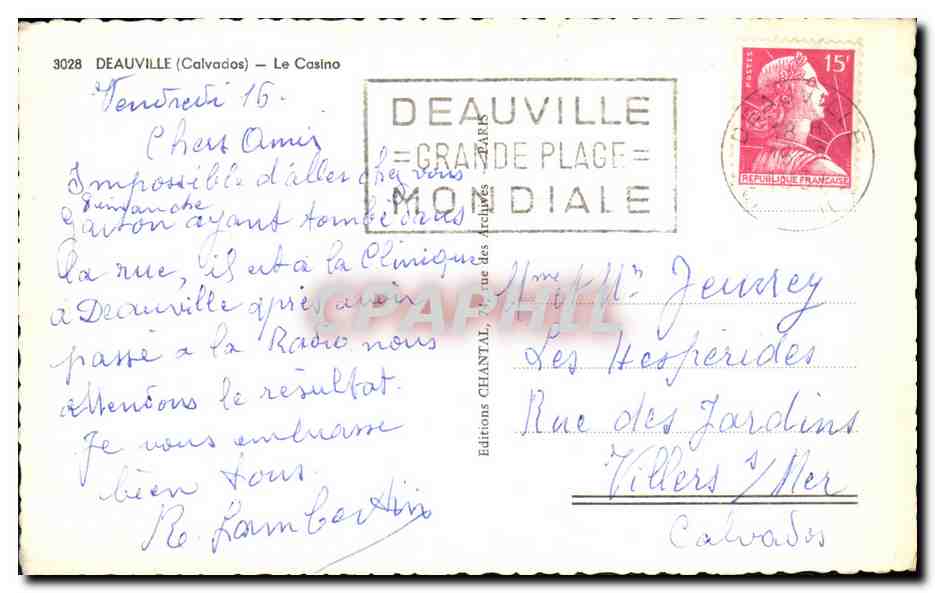 3028 DEAUVILLE (Calvados) — Le Casino
Vendredi 16.
Chers Amis
Impossible d'aller chez vous
dimanche
Gaston ayant tombé dans
la rue, il est à la Clinique
à Deauville après avoir
passé à la Radio nous
attendons le résultat.
Je vous embrasse
bien tous.
R. Lambertin
DEAUVILLE
=GRANDE PLAGE=
MONDIALE
POSTES
15F
REPUBLIQUE FRANCAISE
Editions CHANTAL, 74, rue des Archives - PARIS
CPAPHIL
Mme & Mr Jeuvrey
Les Hespérides
Rue des Jardins
Villers s/Mer
Calvados